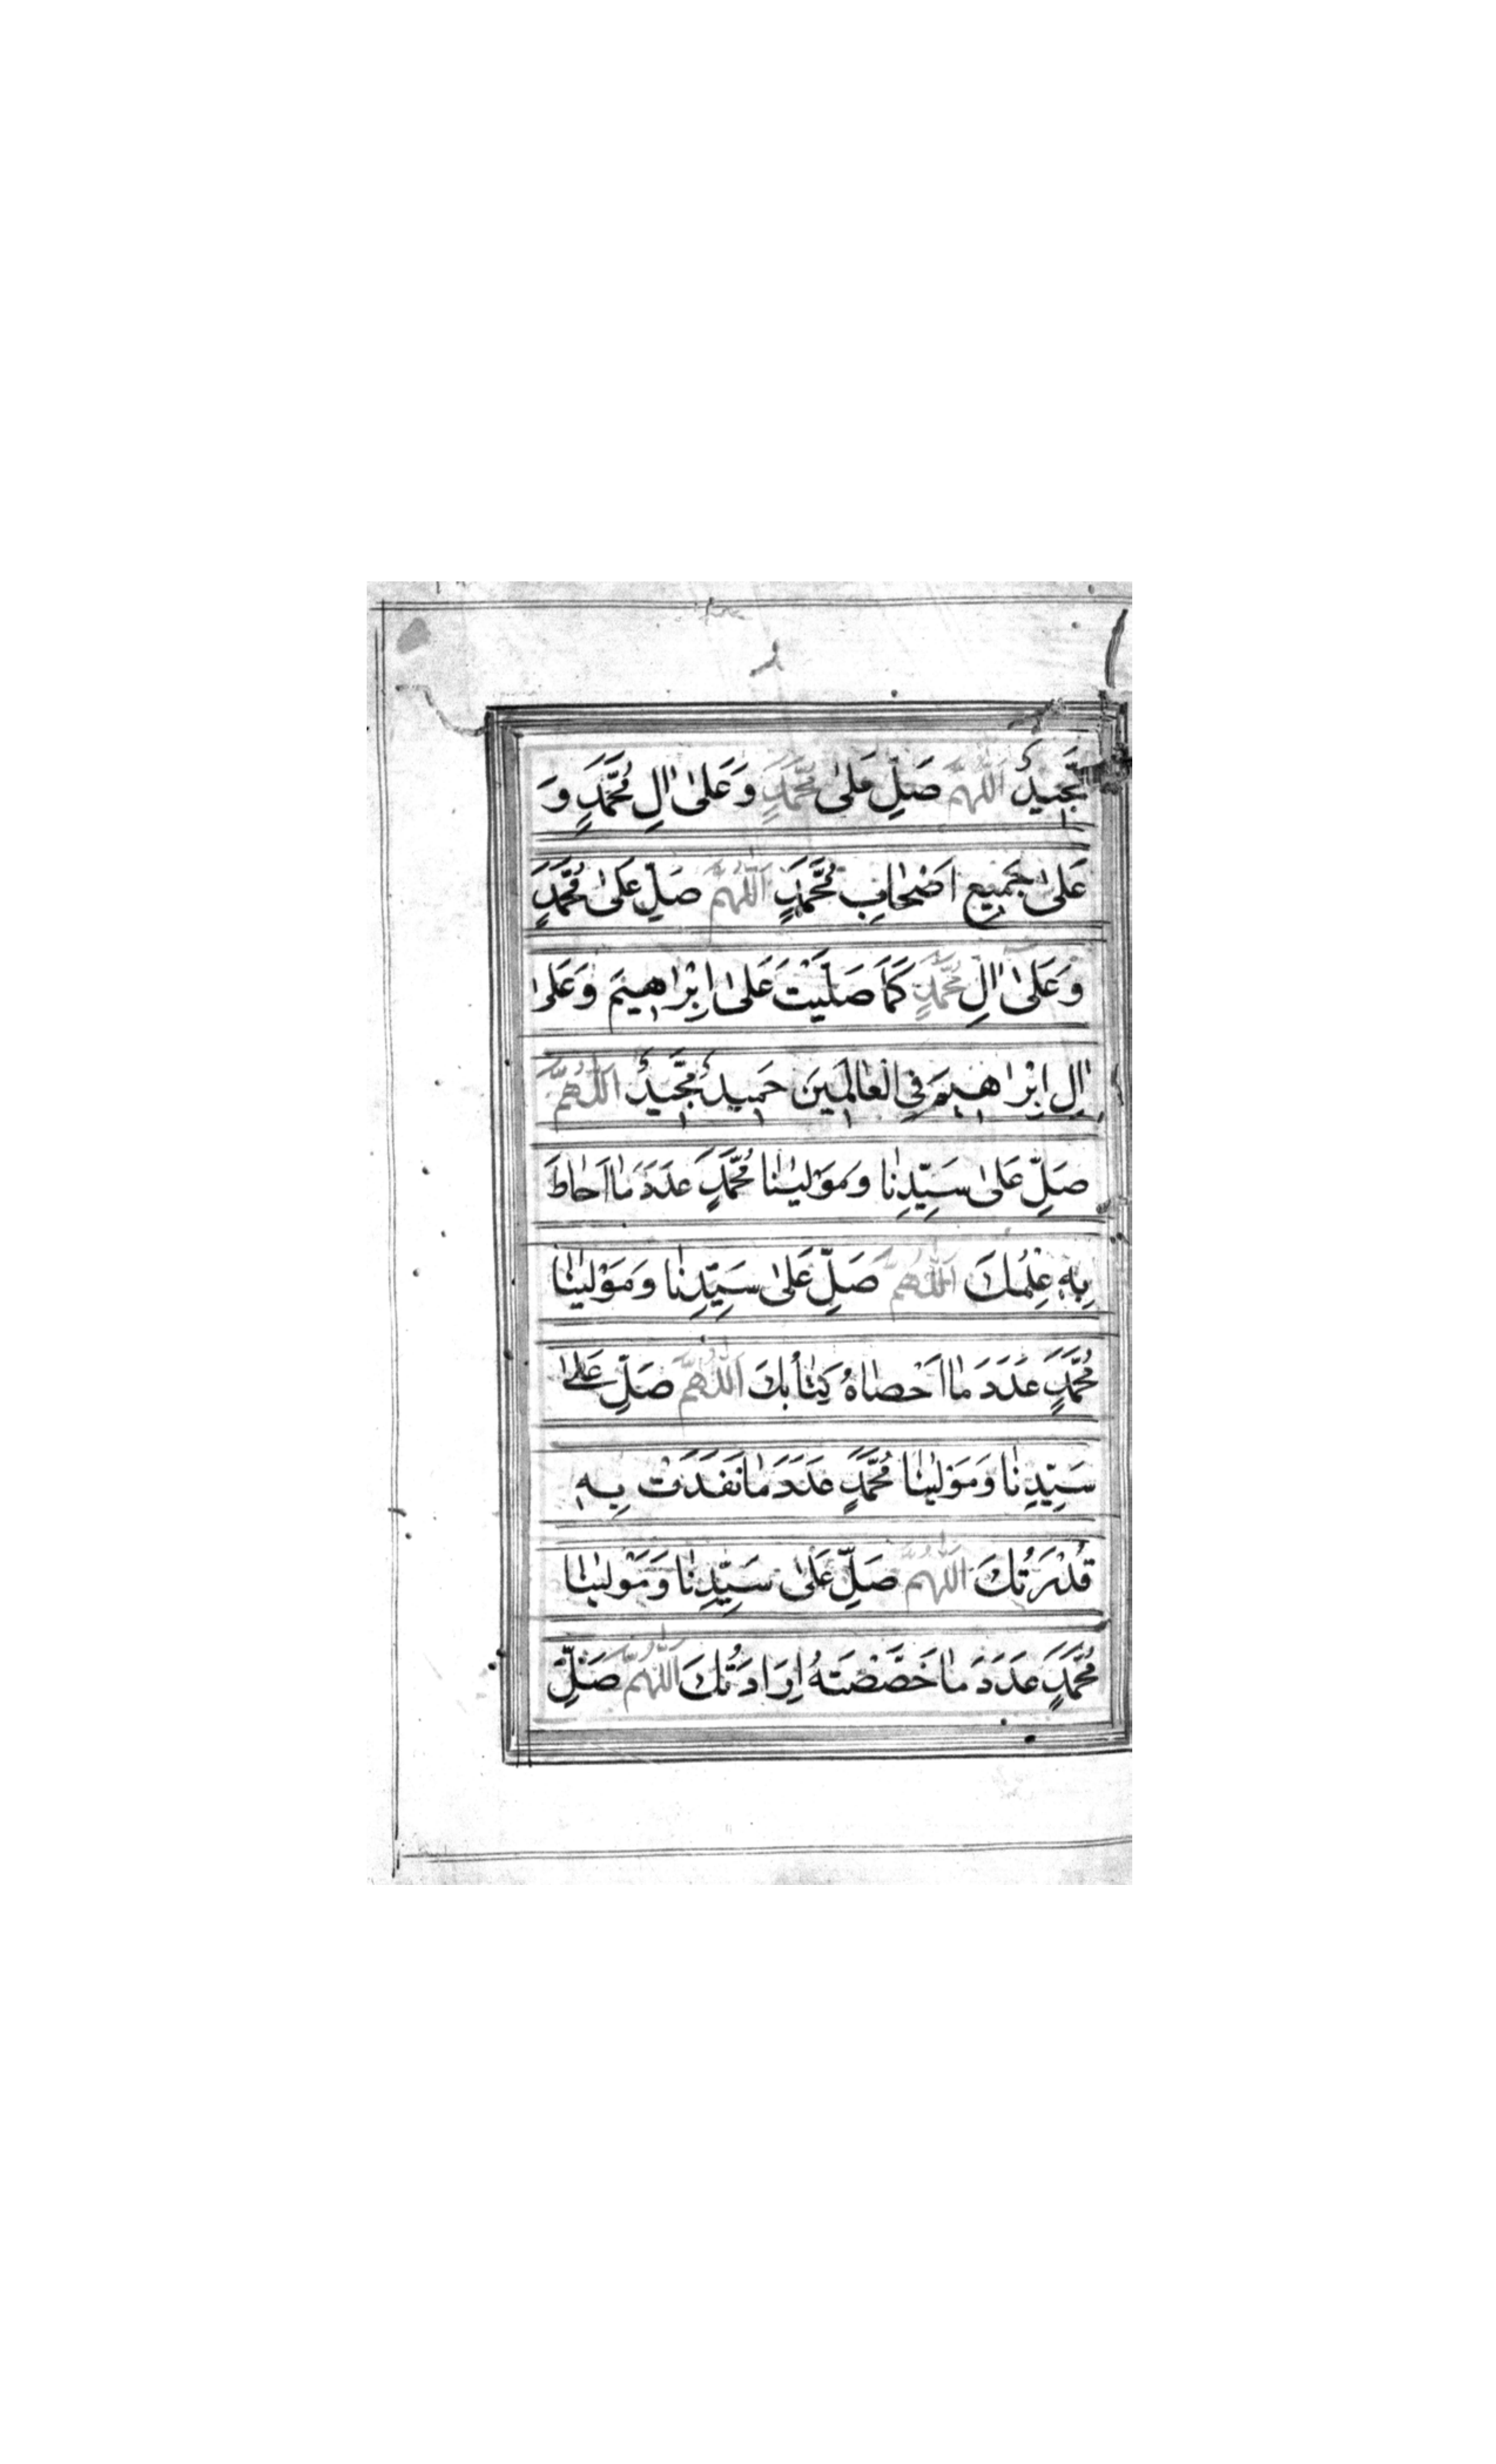 مَّجِيدٌ اَللّٰهُمَّ صَلِّ عَلىٰ مُحَمَّدٍ وَعَلىٰ اٰلِ مُحَمَّدٍ وَ
عَلىٰ جَمِيعِ اَصْحَابِ مُحَمَّدٍ اَللّٰهُمَّ صَلِّ عَلىٰ مُحَمَّدٍ
وَعَلىٰ اٰلِ مُحَمَّدٍ كَمَا صَلَّيْتَ عَلىٰ اِبْرَاهِيمَ وَعَلىٰ
اٰلِ اِبْرَاهِيمَ فِى الْعَالَمِينَ حَمِيدٌ مَّجِيدٌ اَللّٰهُمَّ
صَلِّ عَلىٰ سَيِّدِنَا وَمَوْلٰينَا مُحَمَّدٍ عَدَدَ مَا اَحَاطَ
بِهٖ عِلْمُكَ اَللّٰهُمَّ صَلِّ عَلىٰ سَيِّدِنَا وَمَوْلٰينَا
مُحَمَّدٍ عَدَدَ مَا اَحْصَاهُ كِتَابُكَ اَللّٰهُمَّ صَلِّ عَلىٰ
سَيِّدِنَا وَمَوْلٰينَا مُحَمَّدٍ عَدَدَ مَا نَفَدَتْ بِهٖ
قُدْرَتُكَ اَللّٰهُمَّ صَلِّ عَلىٰ سَيِّدِنَا وَمَوْلٰينَا
مُحَمَّدٍ عَدَدَ مَا خَصَّصَتْهُ اِرَادَتُكَ اَللّٰهُمَّ صَلِّ